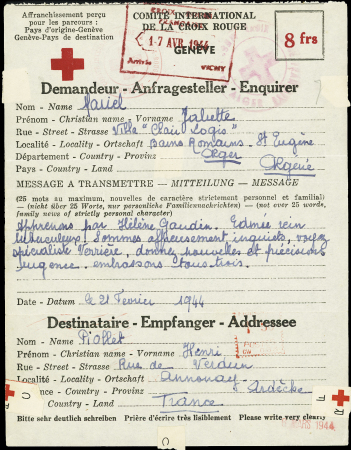 Affranchissement perçu
pour les parcours :
Pays d'origine-Genève
Genève-Pays de destination
COMITÉ INTERNATIONAL
DE LA CROIX ROUGE
GENÈVE
CROIX
17 AVR 1944
Arrivée
VICHY
8 frs
Demandeur - Anfragesteller - Enquirer
Nom - Name Nariel
Prénom - Christian name - Vorname Juliette
Rue - Street - Strasse Villa "Clair Logis"
Localité - Locality - Ortschaft Bains Romains. St Eugène
Département - County - Provinz Alger
Pays - Country - Land Algérie
MESSAGE A TRANSMETTRE — MITTEILUNG — MESSAGE
(25 mots au maximum, nouvelles de caractère strictement personnel et familial) —
(nicht über 25 Worte, nur persönliche Familiennachrichten) — (not over 25 words,
family news of strictly personal character)
Apprenons par Hélène Gaudin. Edmée rein
tuberculeux. Sommes affreusement inquiets, voyez
spécialiste Verrière, donnez nouvelles et précisions
urgence. embrassons tous trois.
Date - Datum le 21 Février 1944
Destinataire - Empfanger - Addressee
Nom - Name Piollet
Prénom - Christian name - Vorname Henri
Rue - Street - Strasse Rue de Verdun
Localité - Locality - Ortschaft Annonay
ince - County - Provinz Ardèche
Country - Land France
MARS 1944
Bitte sehr deutlich schreiben Prière d'écrire très lisiblement Please write very clearly